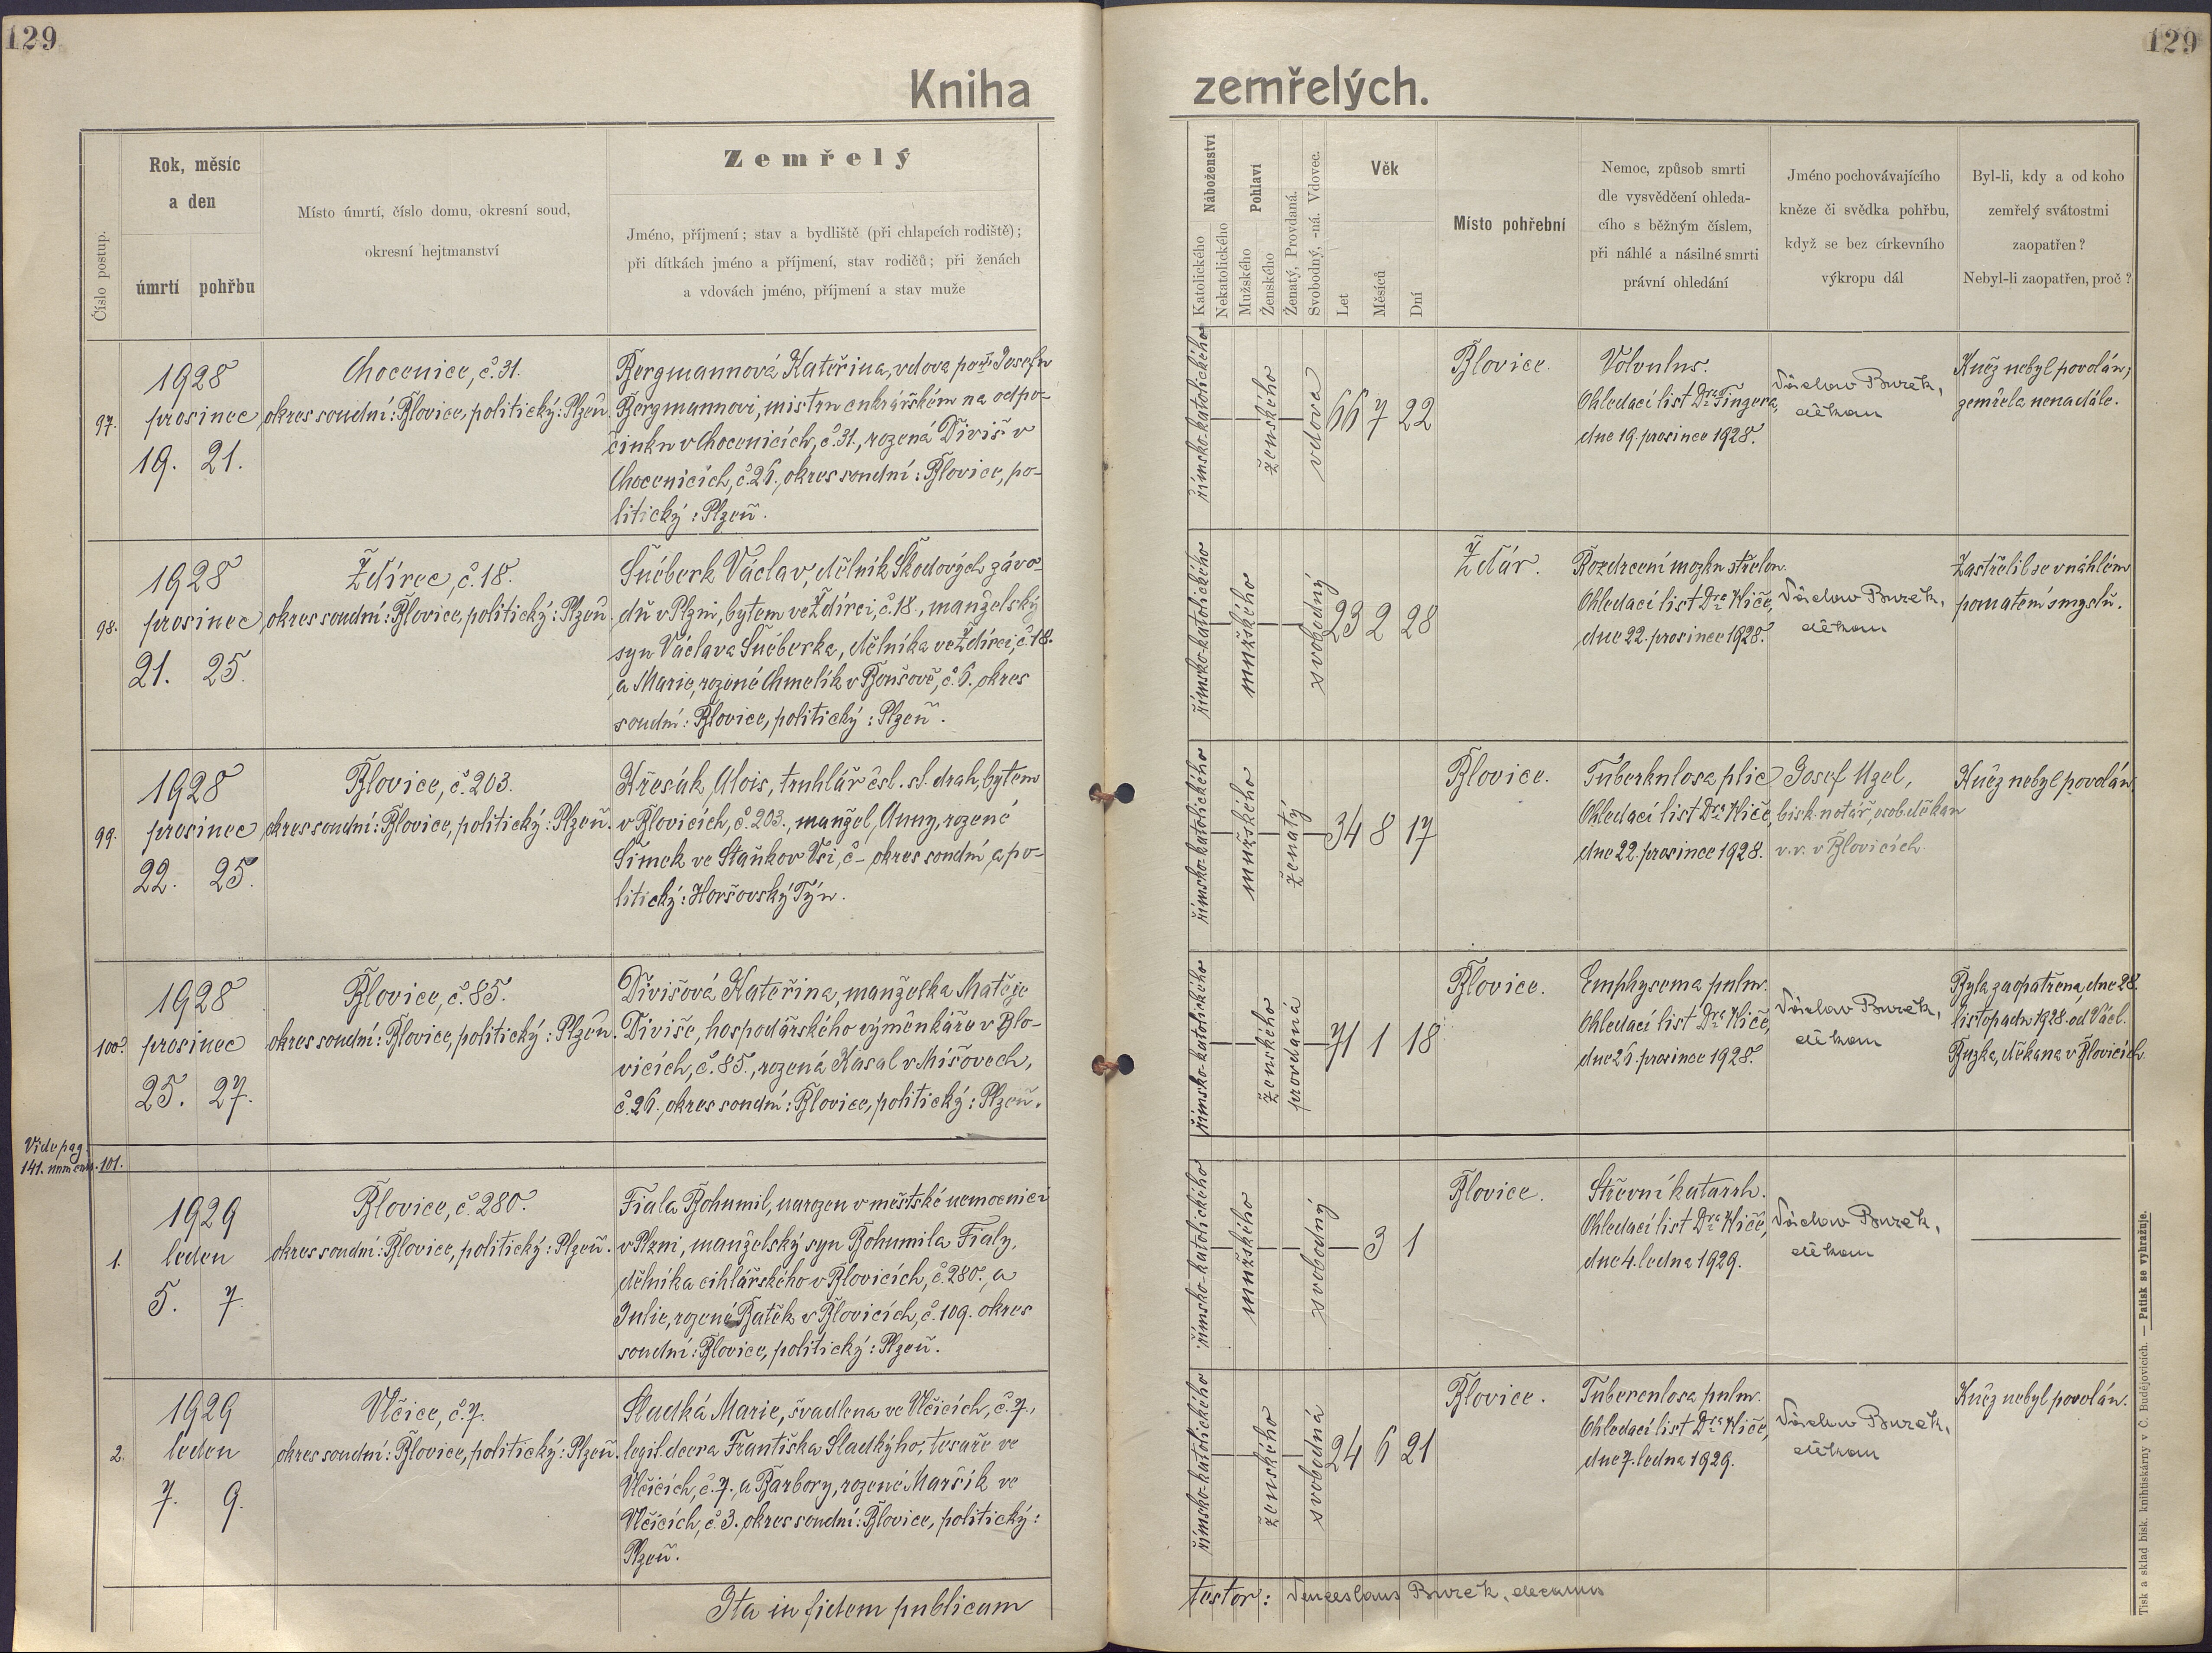 129
129
Kniha zemřelých.
Číslo postup.
Rok, měsíc
a den
úmrtí pohřbu
Místo úmrtí, číslo domu, okresní soud,
okresní hejtmanství
Zemřelý
Jméno, příjmení; stav a bydliště (při chlapcích rodiště);
při dítkách jméno a příjmení, stav rodičů; při ženách
a vdovách jméno, příjmení a stav muže
Náboženství
Katolického
Nekatolického
Pohlaví
Mužského
Ženského
Ženatý, Provdaná.
Svobodný, -ná. Vdovec.
Věk
Let
Měsíců
Dní
Místo pohřební
Nemoc, způsob smrti
dle vysvědčení ohleda-
cího s běžným číslem,
při náhlé a násilné smrti
právní ohledání
Jméno pochovávajícího
kněze či svědka pohřbu,
když se bez církevního
výkropu dál
Byl-li, kdy a od koho
zemřelý svátostmi
zaopatřen?
Nebyl-li zaopatřen, proč?
97.
1928
prosinec
19. 21.
Chocenice, č. 31.
okres soudní: Blovice, politický: Plzeň.
Bergmannová Kateřina, vdova po Josefu
Bergmannovi, mistru cukrářském na odpo-
činku v Chocenicích, č. 31., rozená Diviš v
Chocenicích, č. 26., okres soudní: Blovice, po-
litický: Plzeň.
římsko-katolického
ženského
vdova
66 7 22
Blovice.
Volvulus.
Ohledací list Dra Tingera,
dne 19. prosince 1928.
Václav Burek,
děkan
Kněz nebyl povolán;
zemřela nenadále.
98.
1928
prosinec
21. 25.
Ždírec, č. 18.
okres soudní: Blovice, politický: Plzeň.
Šnéberk Václav, dělník Škodových závo-
dů v Plzni, bytem ve Ždírci, č. 18., manželský
syn Václava Šnéberka, dělníka ve Ždírci, č. 18.
a Marie, rozené Chmelík v Boušově, č. 6. okres
soudní: Blovice, politický: Plzeň.
římsko-katolického
mužského
svobodný
23 2 28
Žďár.
Rozdrcení mozku střelou.
Ohledací list Dra Kliče,
dne 22. prosince 1928.
Václav Burek,
děkan
Zastřelil se v náhlém
pomatení smyslů.
99.
1928
prosinec
22. 25.
Blovice, č. 203.
okres soudní: Blovice, politický: Plzeň.
Křesák Alois, truhlář čsl. st. drah, bytem
v Blovicích, č. 203., manžel Anny, rozené
Šimek ve Staňkov Vsi, č - okres soudní a po-
litický: Horšovský Týn.
římsko-katolického
mužského
ženatý
34 8 17
Blovice.
Tuberkulosa plic
Ohledací list Dra Kliče,
dne 22. prosince 1928.
Josef Uzel,
bisk. notář, osob. děkan
v. v. v Blovicích.
Kněz nebyl povolán.
100.
1928
prosinec
25. 27.
Blovice, č. 85.
okres soudní: Blovice, politický: Plzeň.
Divišová Kateřina, manželka Matěje
Diviše, hospodářského výměnkáře v Blo-
vicích, č. 85., rozená Kasal v Míšovech,
č. 26., okres soudní: Blovice, politický: Plzeň.
římsko-katolického
ženského
provdaná
71 1 18
Blovice.
Emphysema pulm.
Ohledací list Dra Kliče,
dne 26. prosince 1928.
Václav Burek,
děkan
Byla zaopatřena dne 28.
listopadu 1928. od Václ.
Buzka, děkana v Blovicích
Vide pag.
141. num curr. 101.
1.
1929
leden
5. 7.
Blovice, č. 280.
okres soudní: Blovice, politický: Plzeň.
Fiala Bohumil, narozen v městské nemocnici
v Plzni, manželský syn Bohumila Fialy,
dělníka cihlářského v Blovicích, č. 280., a
Julie, rozené Batěk v Blovicích, č. 109. okres
soudní: Blovice, politický: Plzeň.
římsko-katolického
mužského
svobodný
3 1
Blovice.
Střevní katarrh.
Ohledací list Dra Kliče,
dne 4. ledna 1929.
Václav Burek,
děkan
2.
1929
leden
7. 9.
Vlčice, č. 7.
okres soudní: Blovice, politický: Plzeň.
Sladká Marie, švadlena ve Vlčicích, č. 7.,
legit. dcera Františka Sladkýho, tesaře ve
Vlčicích, č. 7., a Barbory, rozené Maršík ve
Vlčicích, č. 3. okres soudní: Blovice, politický:
Plzeň.
římsko-katolického
ženského
svobodná
24 6 21
Blovice.
Tuberculosa pulm.
Ohledací list Dra Kliče,
dne 7. ledna 1929.
Václav Burek,
děkan
Kněz nebyl povolán.
Ita in fidem publicam
testor: Venceslaus Burek, decanus
Tisk a sklad bisk. knihtiskárny v Č. Budějovicích. — Patisk se vyhražuje.